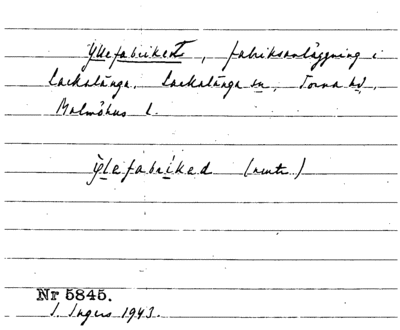 Yllefabriket, fabriksanläggning i
Lackalänga, Lackalänga sn, Torna hd,
Malmöhus l.
ỳlefabriked (neutr.)
Nr 5845.
I. Ingers 1943.